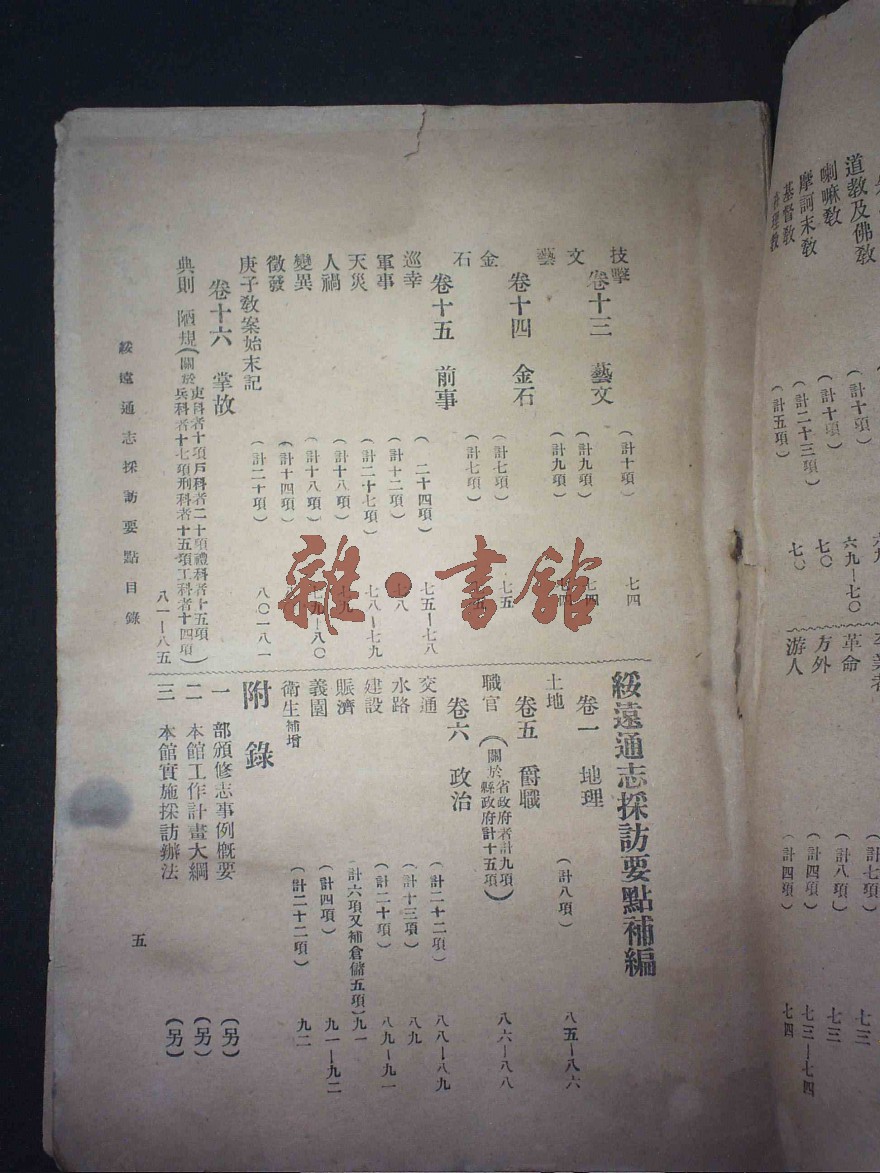 道教及佛教
(計十項)
六九—七〇
喇嘛教
(計十項)
七〇
摩訶末教
(計二十三項)
七〇
基督教
(計五項)
革命
(計七項)
七三
方外
(計八項)
七三
游人
(計四項)
七三—七四
(計四項)
七四
技擊
(計十項)
七四
卷十三 藝文
文
(計九項)
七四
藝
(計九項)
卷十四 金石
金
(計七項)
七五
石
(計七項)
卷十五 前事
巡幸
(二十四項)
七五—七八
軍事
(計十二項)
七八
天災
(計二十七項)
七八—七九
人禍
(計十八項)
變異
(計十八項)
七九—八〇
徵發
(計十四項)
庚子教案始末記
(計二十項)
八〇—八一
卷十六 掌故
典則 陋規(關於吏科者十項戶科者二十項禮科者十五項兵科者十七項刑科者十五項工科者十四項)
八一—八五
綏遠通志採訪要點目錄
綏遠通志採訪要點補編
卷一 地理
土地
(計八項)
八五—八六
卷五 爵職
職官(關於省政府者計九項縣政府計十五項)
八六—八八
卷六 政治
交通
(計二十二項)
八八—八九
水路
(計十三項)
八九
建設
(計二十項)
八九—九一
賑濟
(計六項又補倉儲五項)
九一
義園
(計四項)
九一—九二
衛生補增
(計二十二項)
九二
附錄
一 部頒修志事例概要
(另)
二 本館工作計畫大綱
(另)
三 本館實施採訪辦法
(另)
五
雜·書館